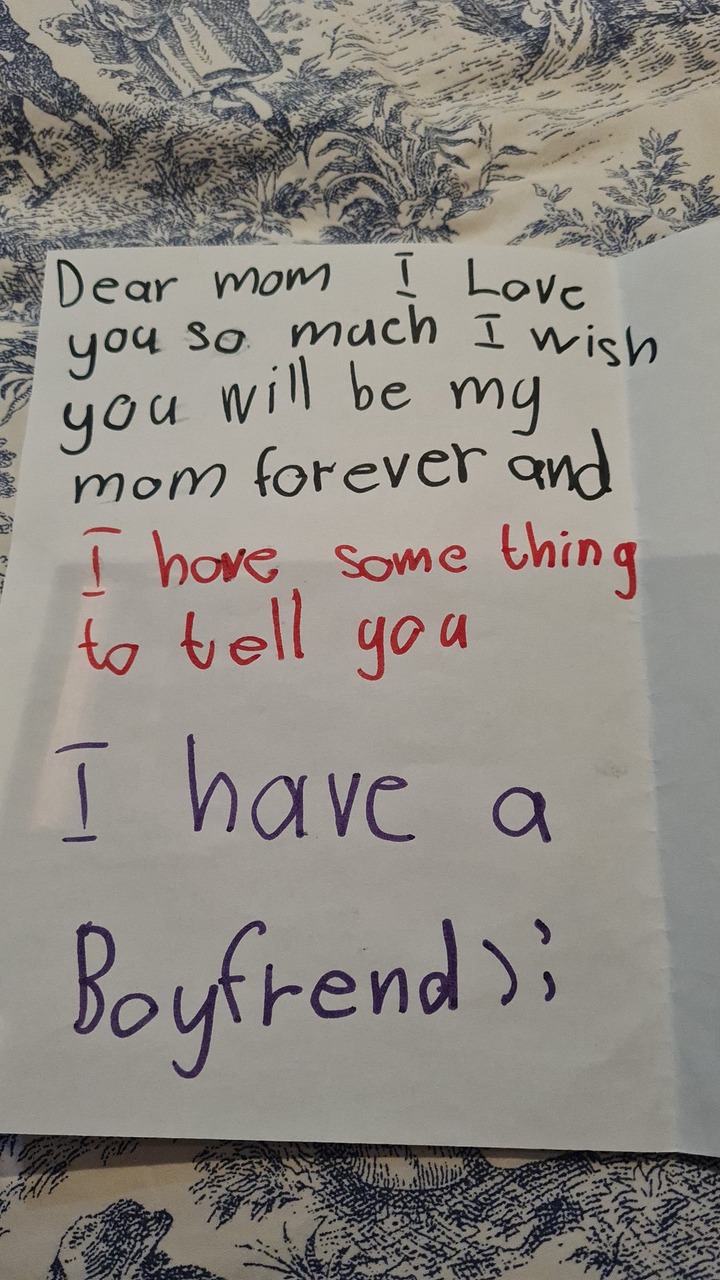 Dear mom I Love
you so much I wish
you will be my
mom forever and
I have some thing
to tell you
I have a
Boyfrend);